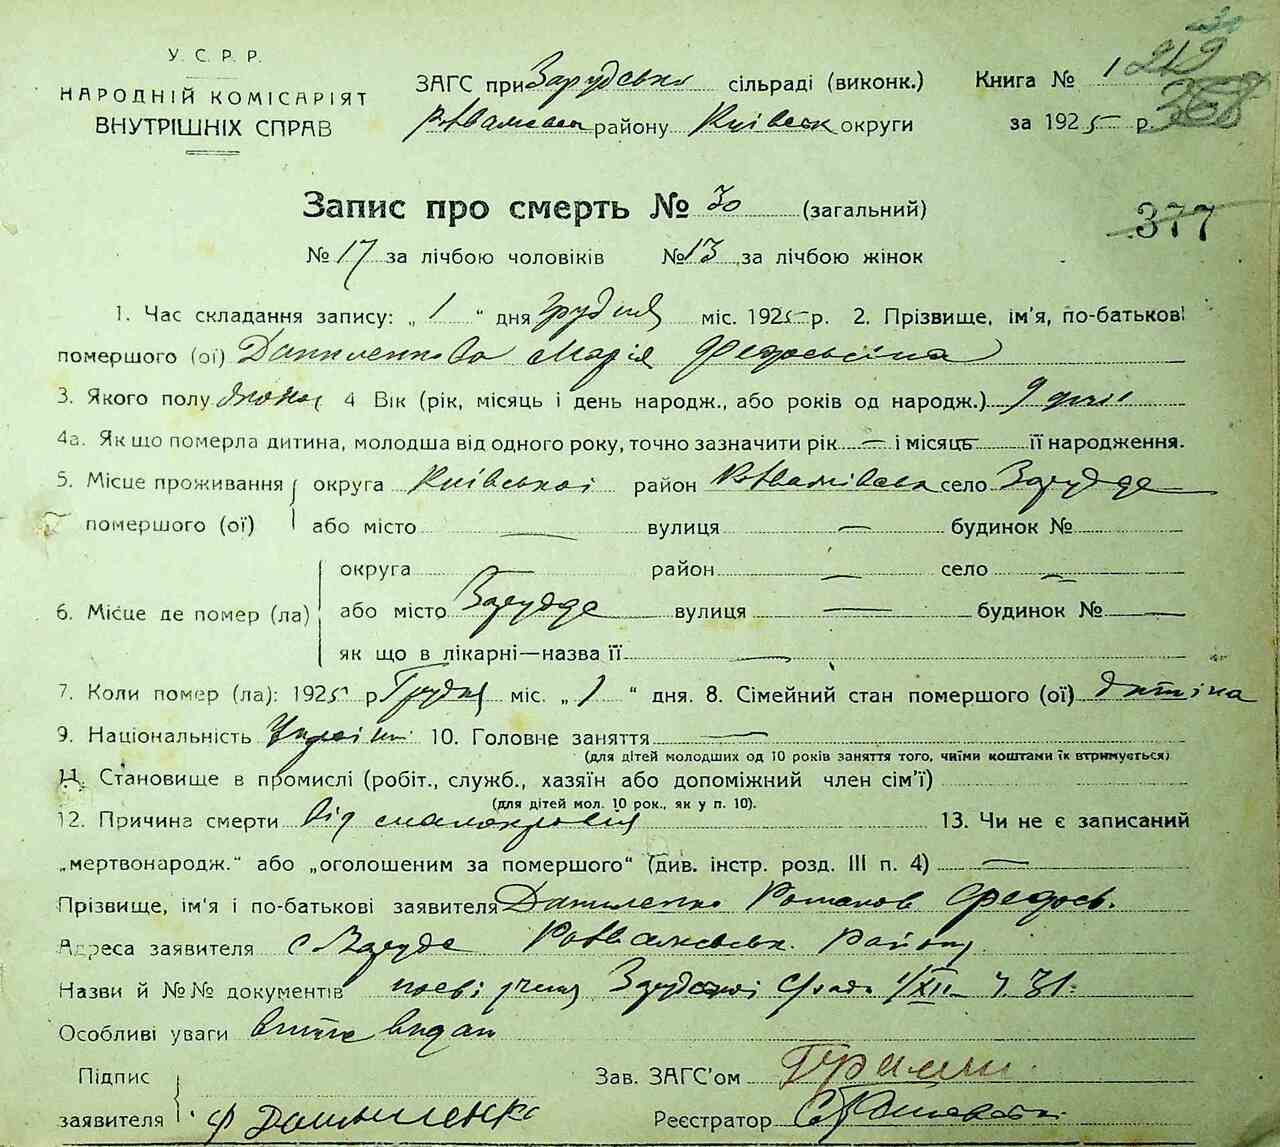 У. С. Р. Р.
НАРОДНІЙ КОМІСАРІЯТ
ВНУТРІШНІХ СПРАВ
ЗАГС при Зарудській сільраді (виконк.)
району Київськ округи
Книга № 1 219
за 1925 р. 368
Запис про смерть № 30 (загальний)
377
№ 17 за лічбою чоловіків № 13 за лічбою жінок
1. Час складання запису: „ 1 “ дня грудня міс. 1925 р. 2. Прізвище, ім'я, по-батькові
помершого (ої) Даниленкова Марія Федосьєвна
3. Якого полу жіноч 4 Вік (рік, місяць і день народж., або років од народж.) 9 днів
4а. Як що померла дитина, молодша від одного року, точно зазначити рік — і місяць — її народження.
5. Місце проживання округа Київської район село Зарудде
помершого (ої) або місто — вулиця — будинок №
округа район — село —
6. Місце де помер (ла) або місто Зарудде вулиця — будинок № —
як що в лікарні—назва її —
7. Коли помер (ла): 1925 р Грудня міс. „ 1 “ дня. 8. Сімейний стан помершого (ої) дитина
9. Національність Україн 10. Головне заняття —
(для дітей молодших од 10 років заняття того, чиїми коштами їх втримується)
11. Становище в промислі (робіт., служб., хазяїн або допоміжний член сім'ї)
(для дітей мол. 10 рок., як у п. 10).
12. Причина смерти від малокровія 13. Чи не є записаний
„мертвонародж.“ або „оголошеним за помершого“ (див. інстр. розд. III п. 4) —
Прізвище, ім'я і по-батькові заявителя Даниленко Федось.
Адреса заявителя с Заруде район
Назви й №№ документів Зарудської с/ради 1/XII ч. 31.
Особливі уваги витяг видан
Підпис
заявителя Ф Даныленко
Зав. ЗАГС'ом
Реєстратор